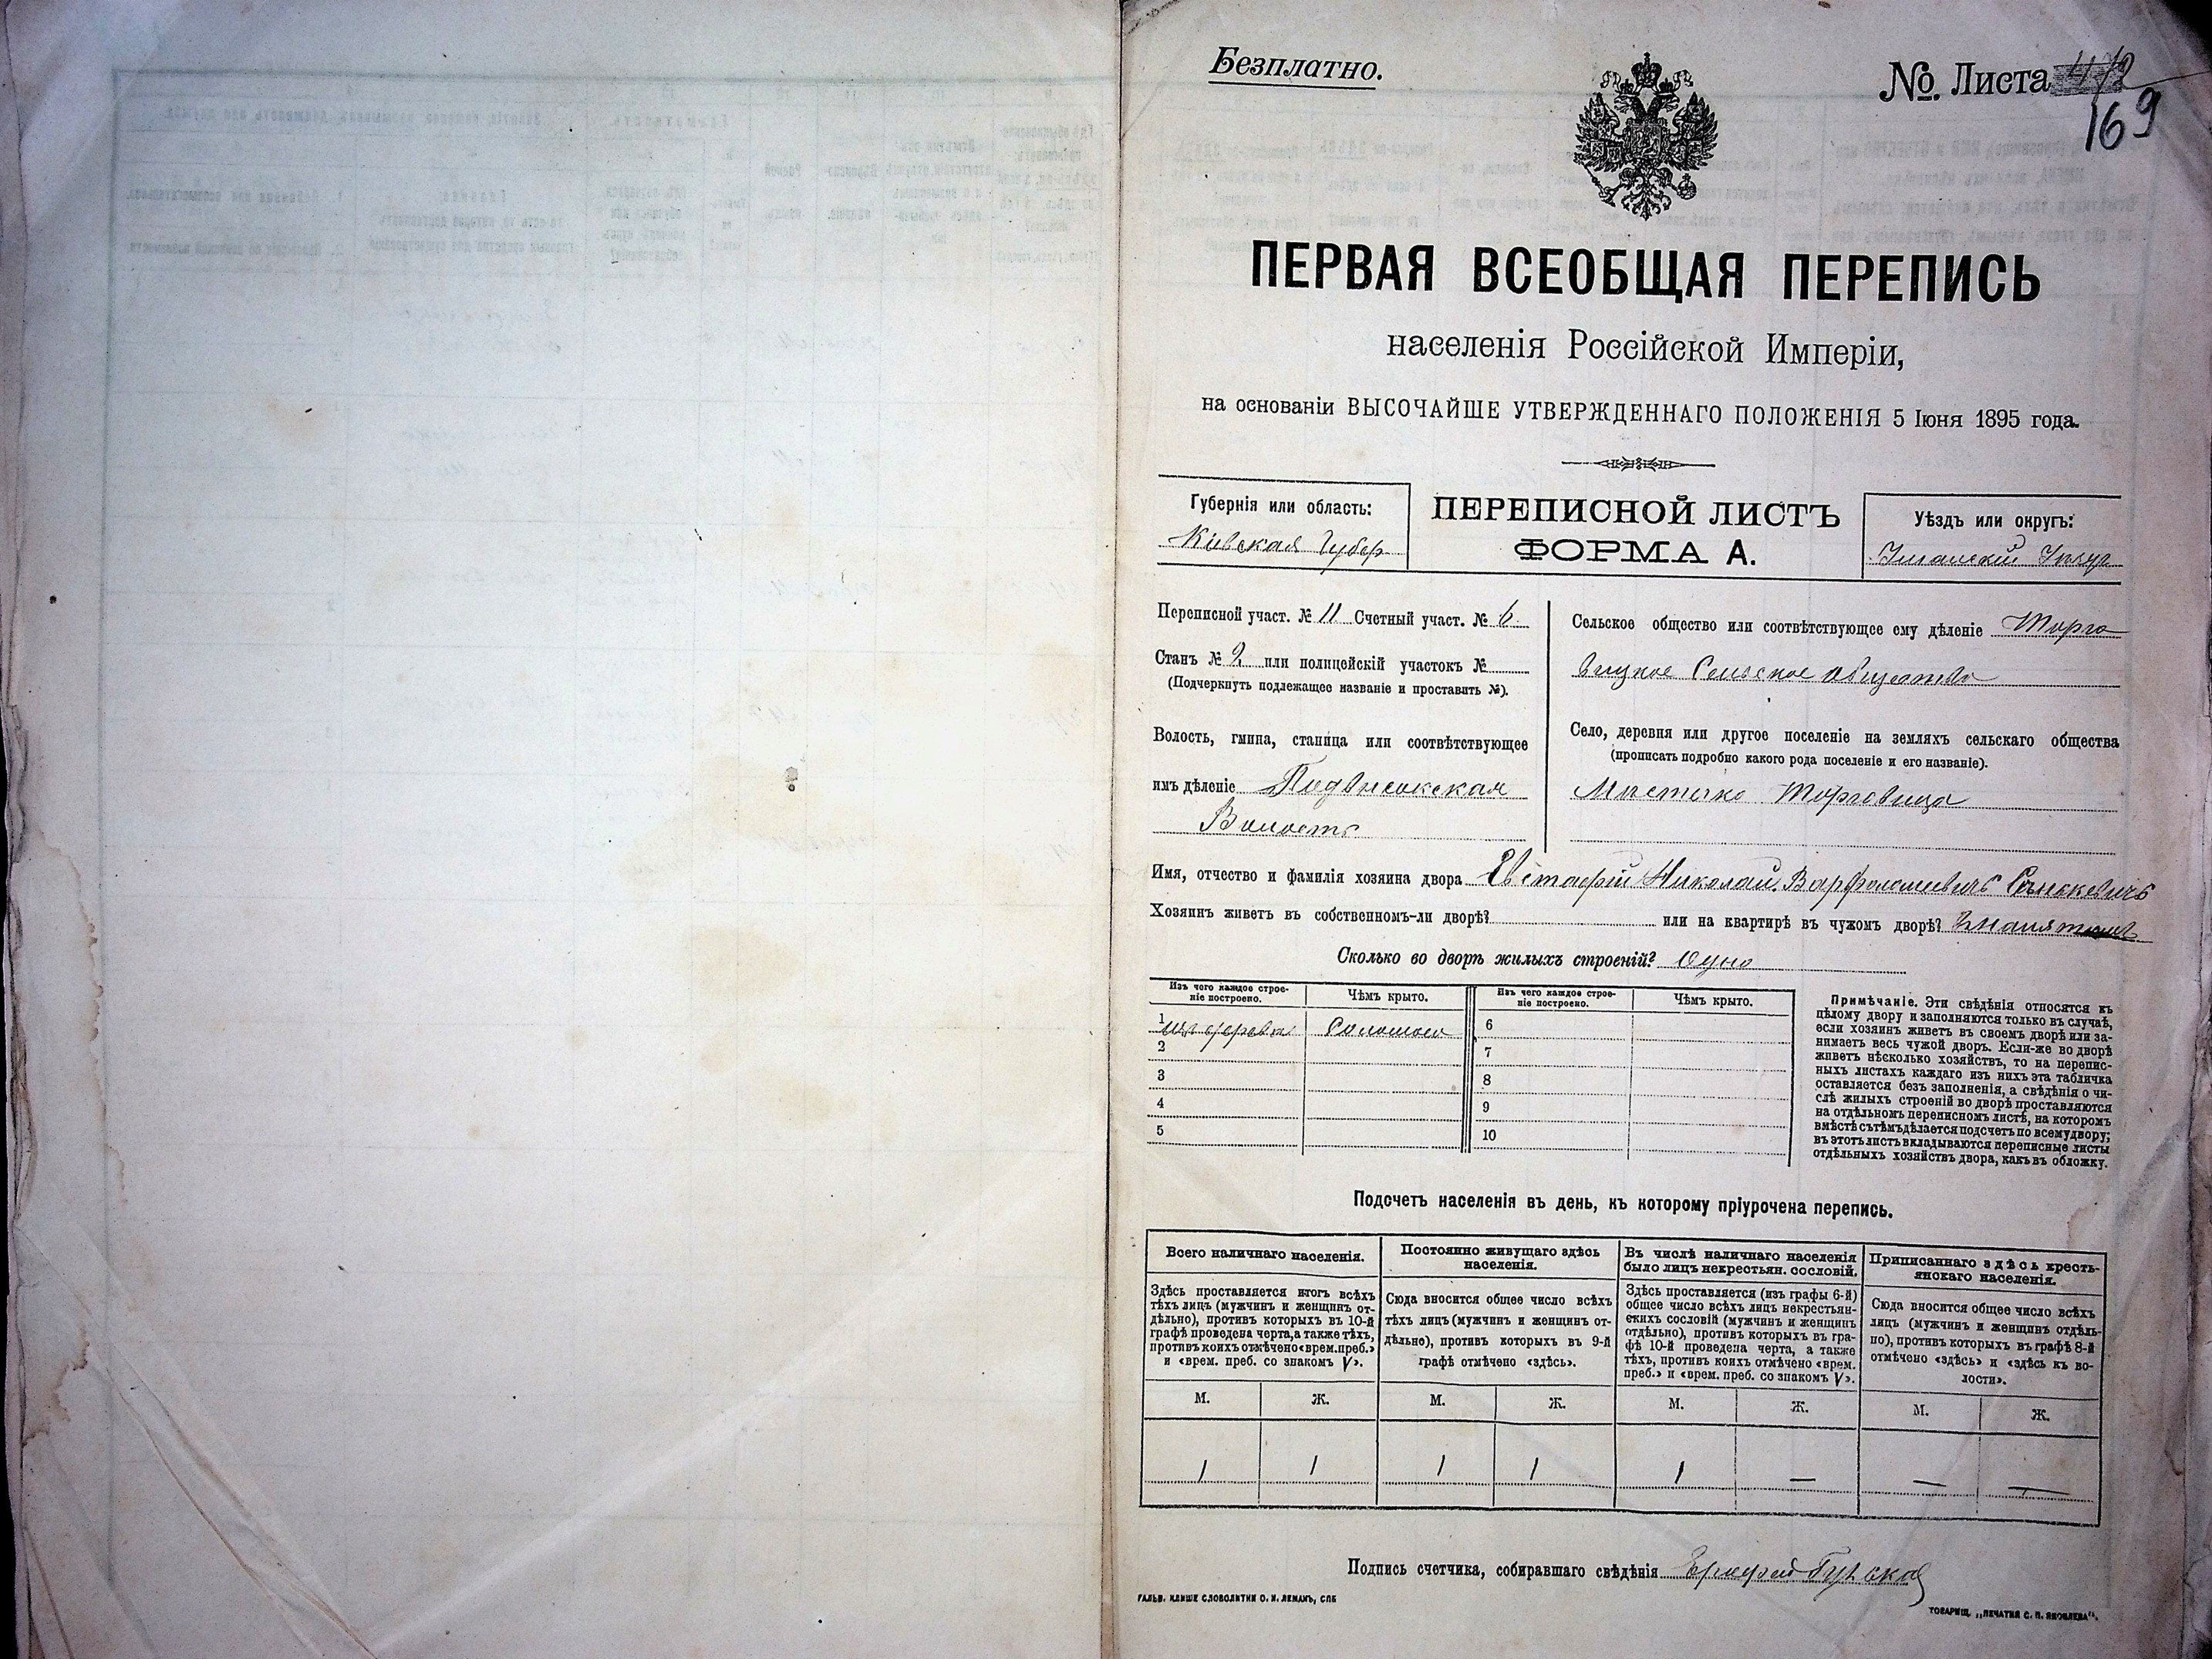 Безплатно.
№ Листа
169
ПЕРВАЯ ВСЕОБЩАЯ ПЕРЕПИСЬ
населенія Россійской Имперіи,
на основаніи ВЫСОЧАЙШЕ УТВЕРЖДЕННАГО ПОЛОЖЕНІЯ 5 Іюня 1895 года.
Губернія или область:
Кіевская Губер
ПЕРЕПИСНОЙ ЛИСТЪ
ФОРМА А.
Уѣздъ или округъ:
Уманскій Уѣздъ
Переписной участ. № 11 Счетный участ. № 6
Станъ № 2 или полицейскій участокъ №
(Подчеркнуть подлежащее названіе и проставить №).
Волость, гмина, станица или соотвѣтствующее
имъ дѣленіе Подвысокская
Волость
Сельское общество или соотвѣтствующее ему дѣленіе Торго
вицкое Сельское общество
Село, деревня или другое поселеніе на земляхъ сельскаго общества
(прописать подробно какого рода поселеніе и его названіе).
Мистечко Торговица
Имя, отчество и фамилія хозяина двора Евстафій Николай Варфоломеевичъ
Хозяинъ живетъ въ собственномъ-ли дворѣ? или на квартирѣ въ чужомъ дворѣ?
Сколько во дворѣ жилыхъ строеній? Одно
Изъ чего каждое строеніе построено.
Чѣмъ крыто.
Изъ чего каждое строеніе построено.
Чѣмъ крыто.
1 изъ дерева Соломою
2
3
4
5
6
7
8
9
10
Примѣчаніе. Эти свѣдѣнія относятся къ
цѣлому двору и заполняются только въ случаѣ,
если хозяинъ живетъ въ своемъ дворѣ или за-
нимаетъ весь чужой дворъ. Если-же во дворѣ
живетъ нѣсколько хозяйствъ, то на перепис-
ныхъ листахъ каждаго изъ нихъ эта табличка
оставляется безъ заполненія, а свѣдѣнія о чи-
слѣ жилыхъ строеній во дворѣ проставляются
на отдѣльномъ переписномъ листѣ, на которомъ
вмѣстѣ съ тѣмъ дѣлается подсчетъ по всему двору;
въ этотъ листъ вкладываются переписные листы
отдѣльныхъ хозяйствъ двора, какъ въ обложку.
Подсчетъ населенія въ день, къ которому пріурочена перепись.
Всего наличнаго населенія.
Здѣсь проставляется итогъ всѣхъ
тѣхъ лицъ (мужчинъ и женщинъ от-
дѣльно), противъ которыхъ въ 10-й
графѣ проведена черта, а также тѣхъ,
противъ коихъ отмѣчено «врем. преб.»
и «врем. преб. со знакомъ V».
Постоянно живущаго здѣсь
населенія.
Сюда вносится общее число всѣхъ
тѣхъ лицъ (мужчинъ и женщинъ от-
дѣльно), противъ которыхъ въ 9-й
графѣ отмѣчено «здѣсь».
Въ числѣ наличнаго населенія
было лицъ некрестьян. сословій.
Здѣсь проставляется (изъ графы 6-й)
общее число всѣхъ лицъ некрестьян-
скихъ сословій (мужчинъ и женщинъ
отдѣльно), противъ которыхъ въ гра-
фѣ 10-й проведена черта, а также
тѣхъ, противъ коихъ отмѣчено «врем.
преб.» и «врем. преб. со знакомъ V».
Приписаннаго здѣсь кресть-
янскаго населенія.
Сюда вносится общее число всѣхъ
лицъ (мужчинъ и женщинъ отдѣль-
но), противъ которыхъ въ графѣ 8-й
отмѣчено «здѣсь» и «здѣсь къ во-
лости».
М. Ж. М. Ж. М. Ж. М. Ж.
1 1 1 1 1 — — —
Подпись счетчика, собиравшаго свѣдѣнія
ГАЛЬВ. КЛИШЕ СЛОВОЛИТНИ О. И. ЛЕМАНЪ, СПБ
ТОВАРИЩ. „ПЕЧАТНЯ С. П. ЯКОВЛЕВА“.